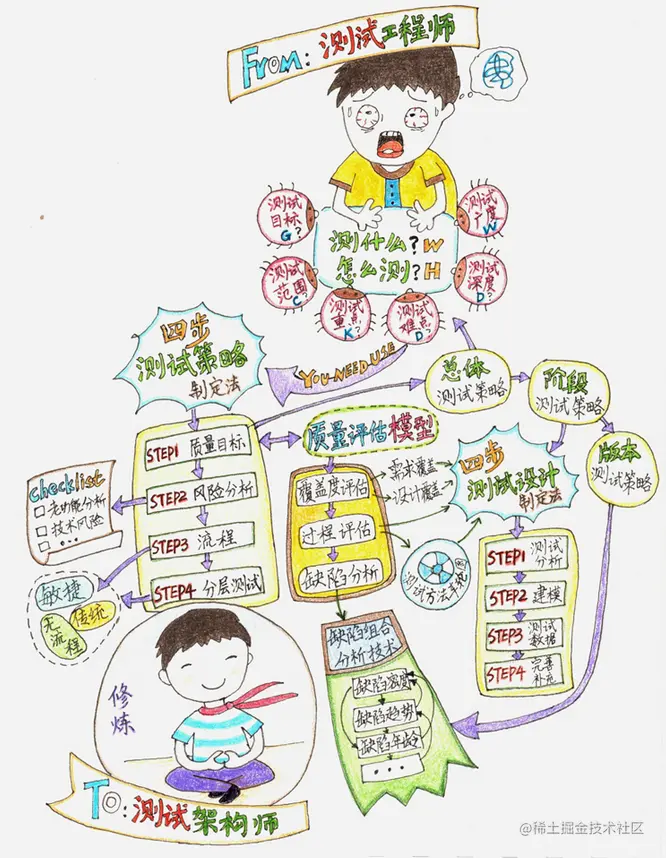 From: 测试工程师
测试
目标
G?
测试
广度
W
测什么? W
怎么测? H
测试
范围
C
测试
深度?
D
测试
重点
K?
测试
难点?
D
YOU NEED USE
四步
测试策略
制定法
总体
测试策略
阶段
测试策略
版本
测试策略
STEP1 质量目标
STEP2 风险分析
STEP3 流程
STEP4 分层测试
checklist
老功能分析
技术风险
...
敏捷
传统
无流程
质量评估模型
覆盖度评估
过程评估
缺陷分析
需求覆盖
设计覆盖
测试方法车轮图
四步
测试设计
制定法
STEP1 测试
分析
STEP2 建模
STEP3 测试
数据
STEP4 完善
补充
缺陷组合
分析技术
缺陷密度
缺陷趋势
缺陷年龄
...
修炼
TO: 测试架构师
@稀土掘金技术社区